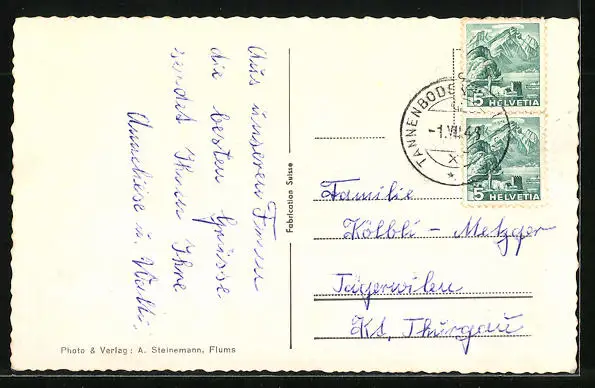 Aus unseren Ferien
die besten Grüsse
sendet Ihnen Ihre
Anneliese u. Walti.
Fabrication Suisse
Photo & Verlag: A. Steinemann, Flums
5 HELVETIA
5 HELVETIA
TANNENBODE
-1.VII.43
Familie
Kölbli - Metzger
Tägerwilen
Kt. Thurgau